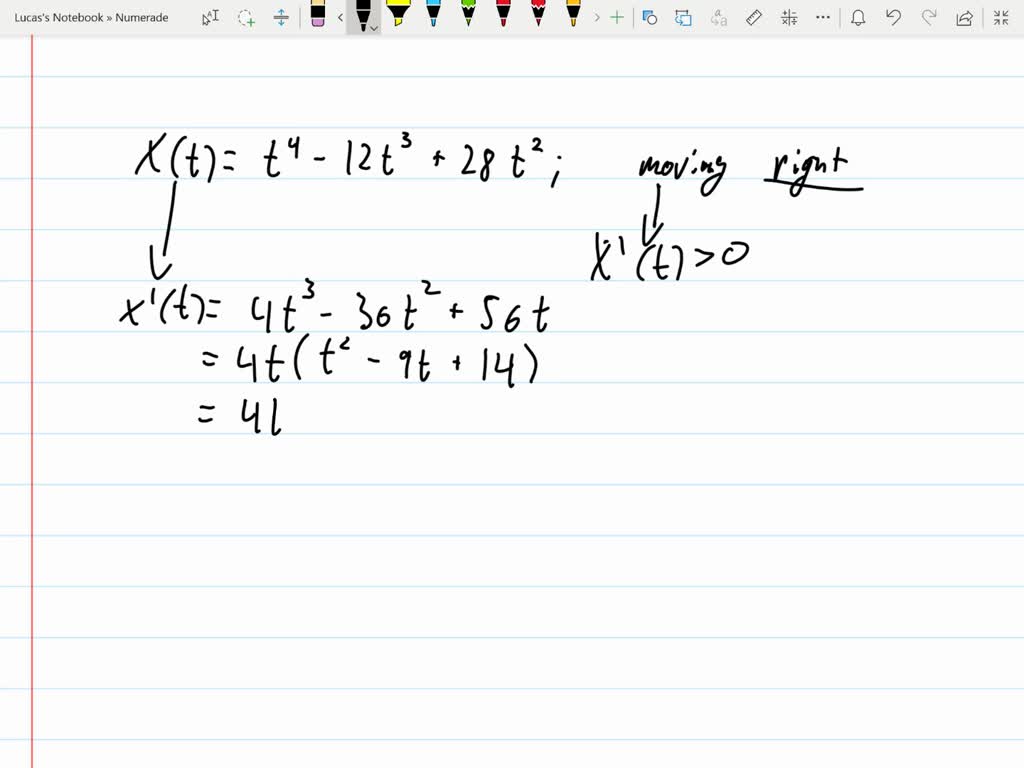 Lucas's Notebook » Numerade
X(t) = t⁴ - 12t³ + 28t²; moving right
X'(t) > 0
x'(t) = 4t³ - 36t² + 56t
= 4t(t² - 9t + 14)
= 4l